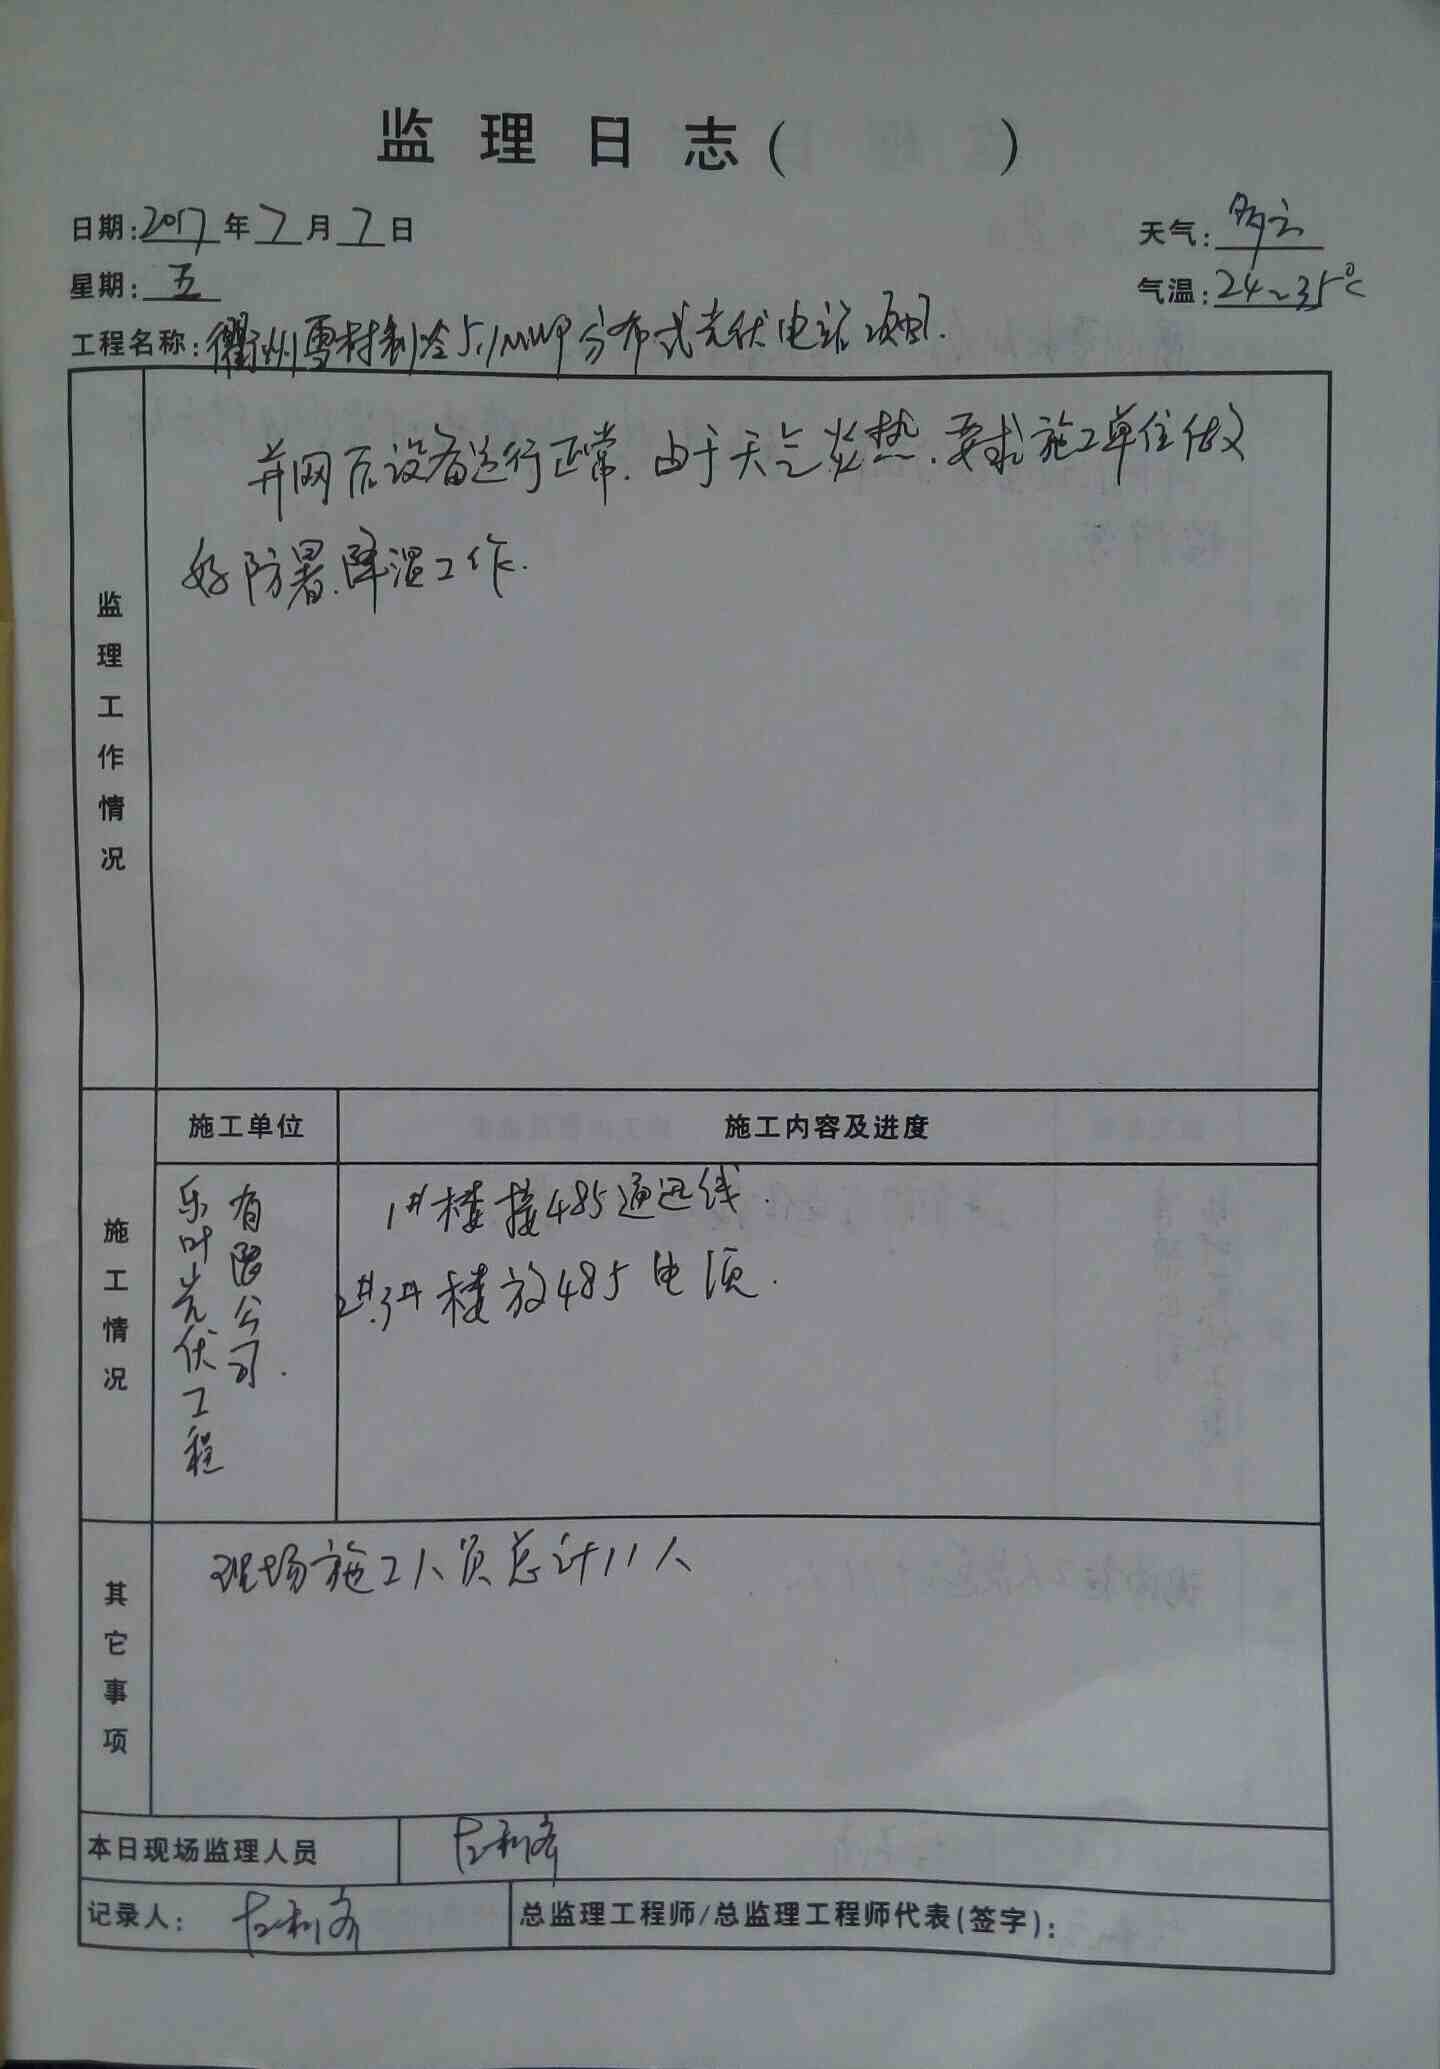 监理日志(      )
日期:2017年7月7日
天气:多云
星期:五
气温:24~35℃
工程名称:衢州雪村制冷5.1MWP分布式光伏电站项目.
监理工作情况
并网后设备运行正常.由于天气炎热.要求施工单位做
好防暑.降温工作.
施工情况
施工单位
施工内容及进度
乐叶光伏工程
有限公司.
1#楼接485通迅线.
2#.3#楼放485电源.
其它事项
现场施工人员总计11人
本日现场监理人员
记录人:
总监理工程师/总监理工程师代表(签字):